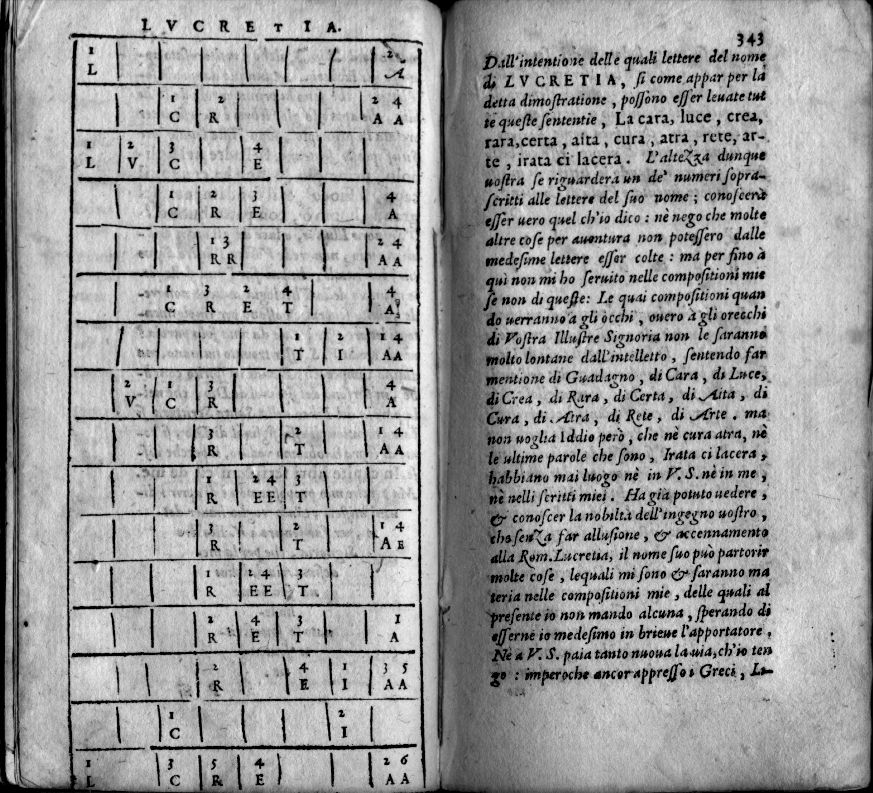 LVCRETIA.
1 2
L A
1 2 2 4
C R A A
1 2 3 4
L V C E
1 2 3 4
C R E A
1 3 2 4
R R A A
1 3 2 4 4
C R E T A
1 2 1 4
T I A A
2 1 3 4
V C R A
3 2 1 4
R T A A
1 2 4 3
R E E T
3 2 1 4
R T A E
1 2 4 3
R E E T
2 4 3 1
R E T A
2 4 1 3 5
R E I A A
1 2
C I
1 3 5 4 2 6
L C R E A A
343
Dall'intentione delle quali lettere del nome
di LVCRETIA, si come appar per la
detta dimostratione, possono esser leuate tut
te queste sententie, La cara, luce, crea,
rara,certa, aita, cura, atra, rete, ar-
te, irata ci lacera. L'altezza dunque
uostra se riguarderà un de' numeri sopra-
scritti alle lettere del suo nome; conoscerà
esser uero quel ch'io dico: nè nego che molte
altre cose per auentura non potessero dalle
medesime lettere esser colte: ma per fino à
quì non mi ho seruito nelle compositioni mie
se non di queste: Le quai compositioni quan
do uerranno a gli occhi, ouero à gli orecchi
di Vostra Illustre Signoria non le saranno
molto lontane dall'intelletto, sentendo far
mentione di Guadagno, di Cara, di Luce,
di Crea, di Rara, di Certa, di Aita, di
Cura, di Atra, di Rete, di Arte. ma
non uoglia Iddio però, che nè cura atra, nè
le ultime parole che sono, Irata ci lacera,
habbiano mai luogo nè in V. S. nè in me,
nè nelli scritti miei. Ha già potuto uedere,
& conoscer la nobiltà dell'ingegno uostro,
che senza far allusione, & accennamento
alla Rom. Lucretia, il nome suo può partorir
molte cose, lequali mi sono & saranno ma
teria nelle compositioni mie, delle quali al
presente io non mando alcuna, sperando di
esserne io medesimo in brieue l'apportatore.
Nè a V. S. paia tanto nuoua la uia,ch'io ten
go: imperoche ancor appresso i Greci, Li-